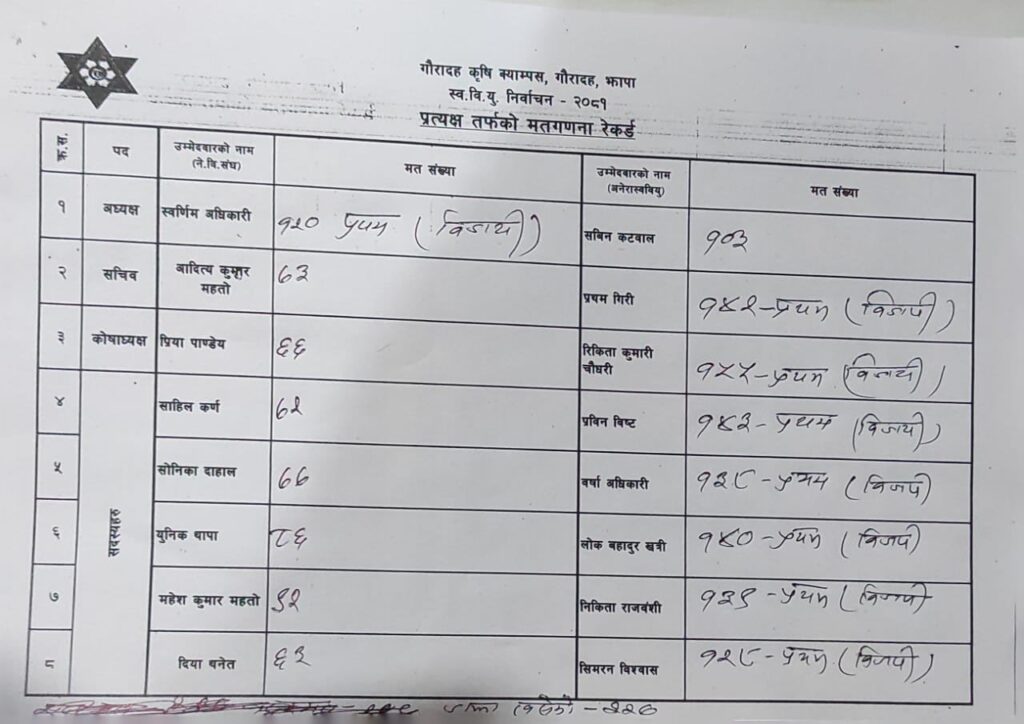 गौरादह कृषि क्याम्पस, गौरादह, झापा
स्व.वि.यु. निर्वाचन - २०८१
प्रत्यक्ष तर्फको मतगणना रेकर्ड
क्र.स. पद उम्मेदवारको नाम (ने.वि.संघ) मत संख्या उम्मेदवारको नाम (अनेरास्ववियु) मत संख्या
१ अध्यक्ष स्वर्णिम अधिकारी १२० प्रथम (विजायी) सबिन कटवाल १०३
२ सचिव आदित्य कुमार महतो ७३ प्रथम गिरी १४२-प्रथम (विजयी)
३ कोषाध्यक्ष प्रिया पाण्डेय ६६ रिकिता कुमारी चौधरी १५५-प्रथम (विजयी)
४ सदस्यहरु साहिल कर्ण ७२ प्रविन विष्ट १४३-प्रथम (विजयी)
५ सोनिका दाहाल ७७ वर्षा अधिकारी १३८-प्रथम (विजयी)
६ युनिक थापा ८६ लोक बहादुर खत्री १४०-प्रथम (विजयी)
७ महेश कुमार महतो ९२ निकिता राजवंशी १३९-प्रथम (विजयी)
८ दिया बनेत ६३ सिमरन विश्वास १२८-प्रथम (विजयी)